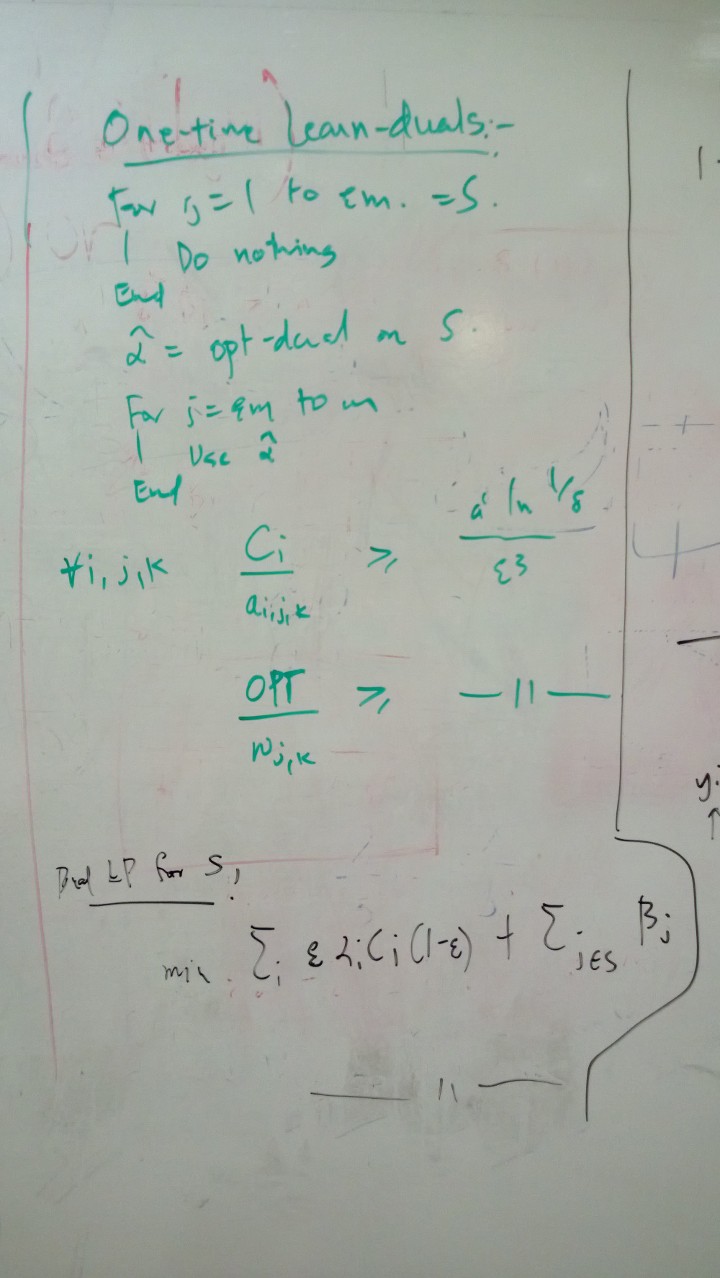 One-time learn-duals:-
For j = 1 to εm. = S.
Do nothing
End
α̂ = opt-dual on S.
For j = εm to m
Use α̂
End
∀i,j,k C_i / a_{i,j,k} ≥ a' ln 1/δ / ε3
OPT / w_{j,k} ≥ —11—
Dual LP for S:
min. Σ_i ε α_i C_i (1-ε) + Σ_{j∈S} β_j
— 11 —
1
y.
↑